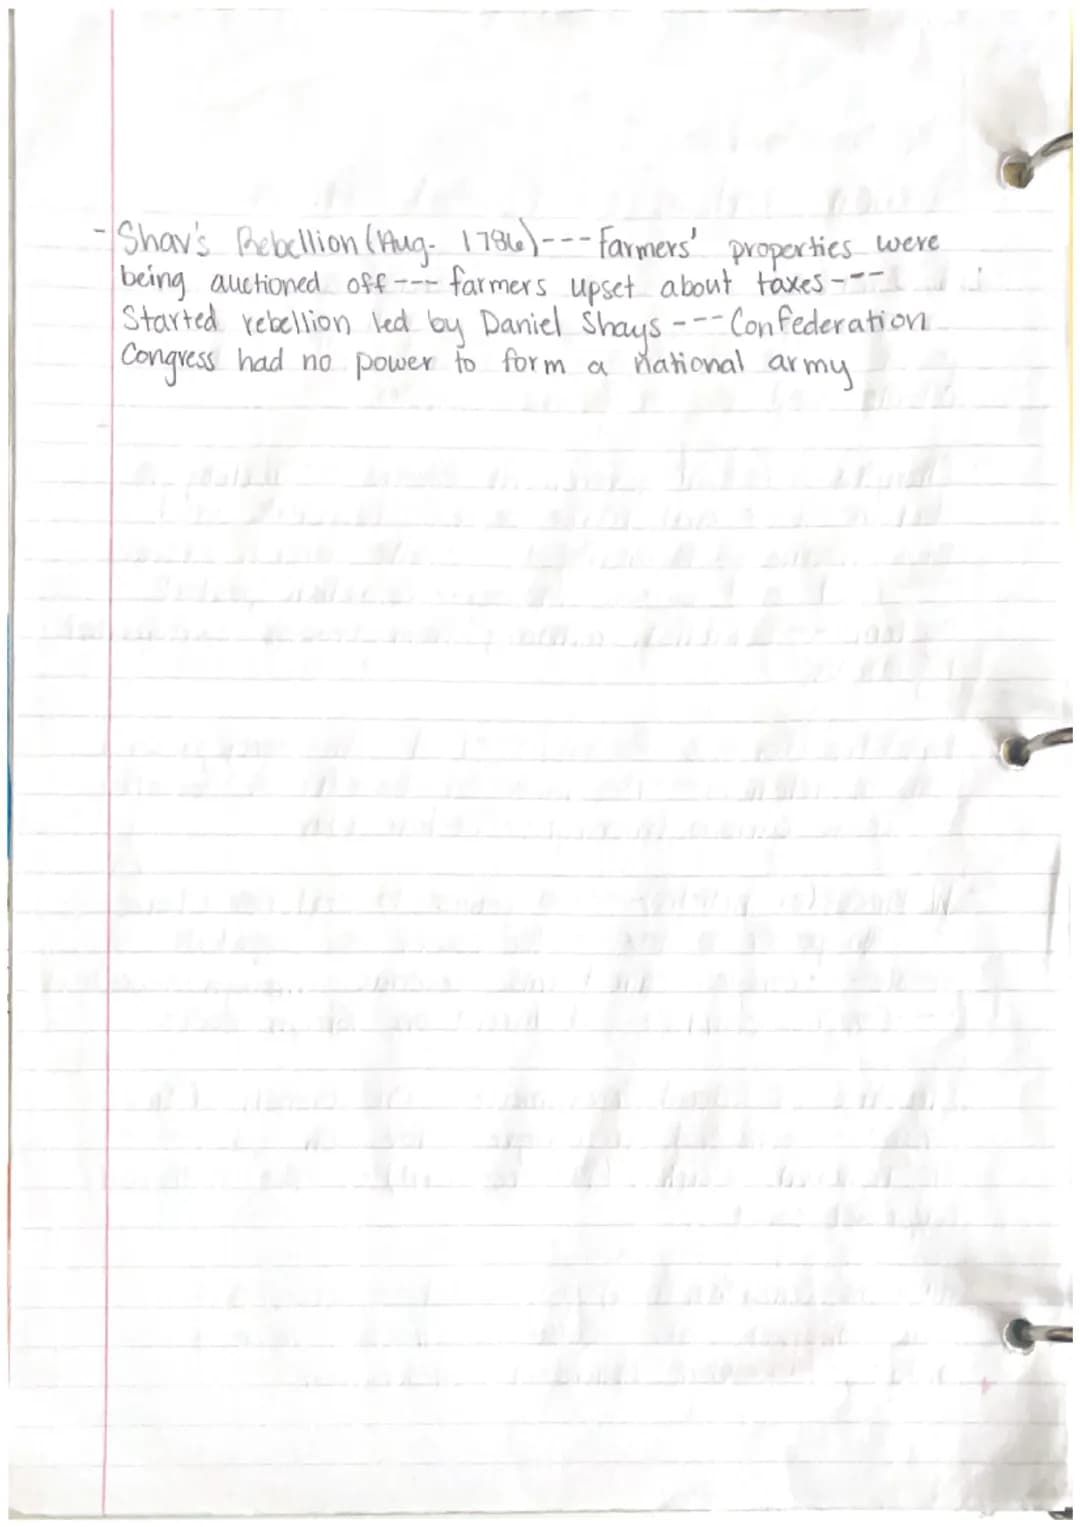 - Shav's Rebellion (Aug. 1786)--- Farmers' properties were
being auctioned off --- farmers upset about taxes ---
Started rebellion led by Daniel Shays --- Confederation
Congress had no power to form a national army